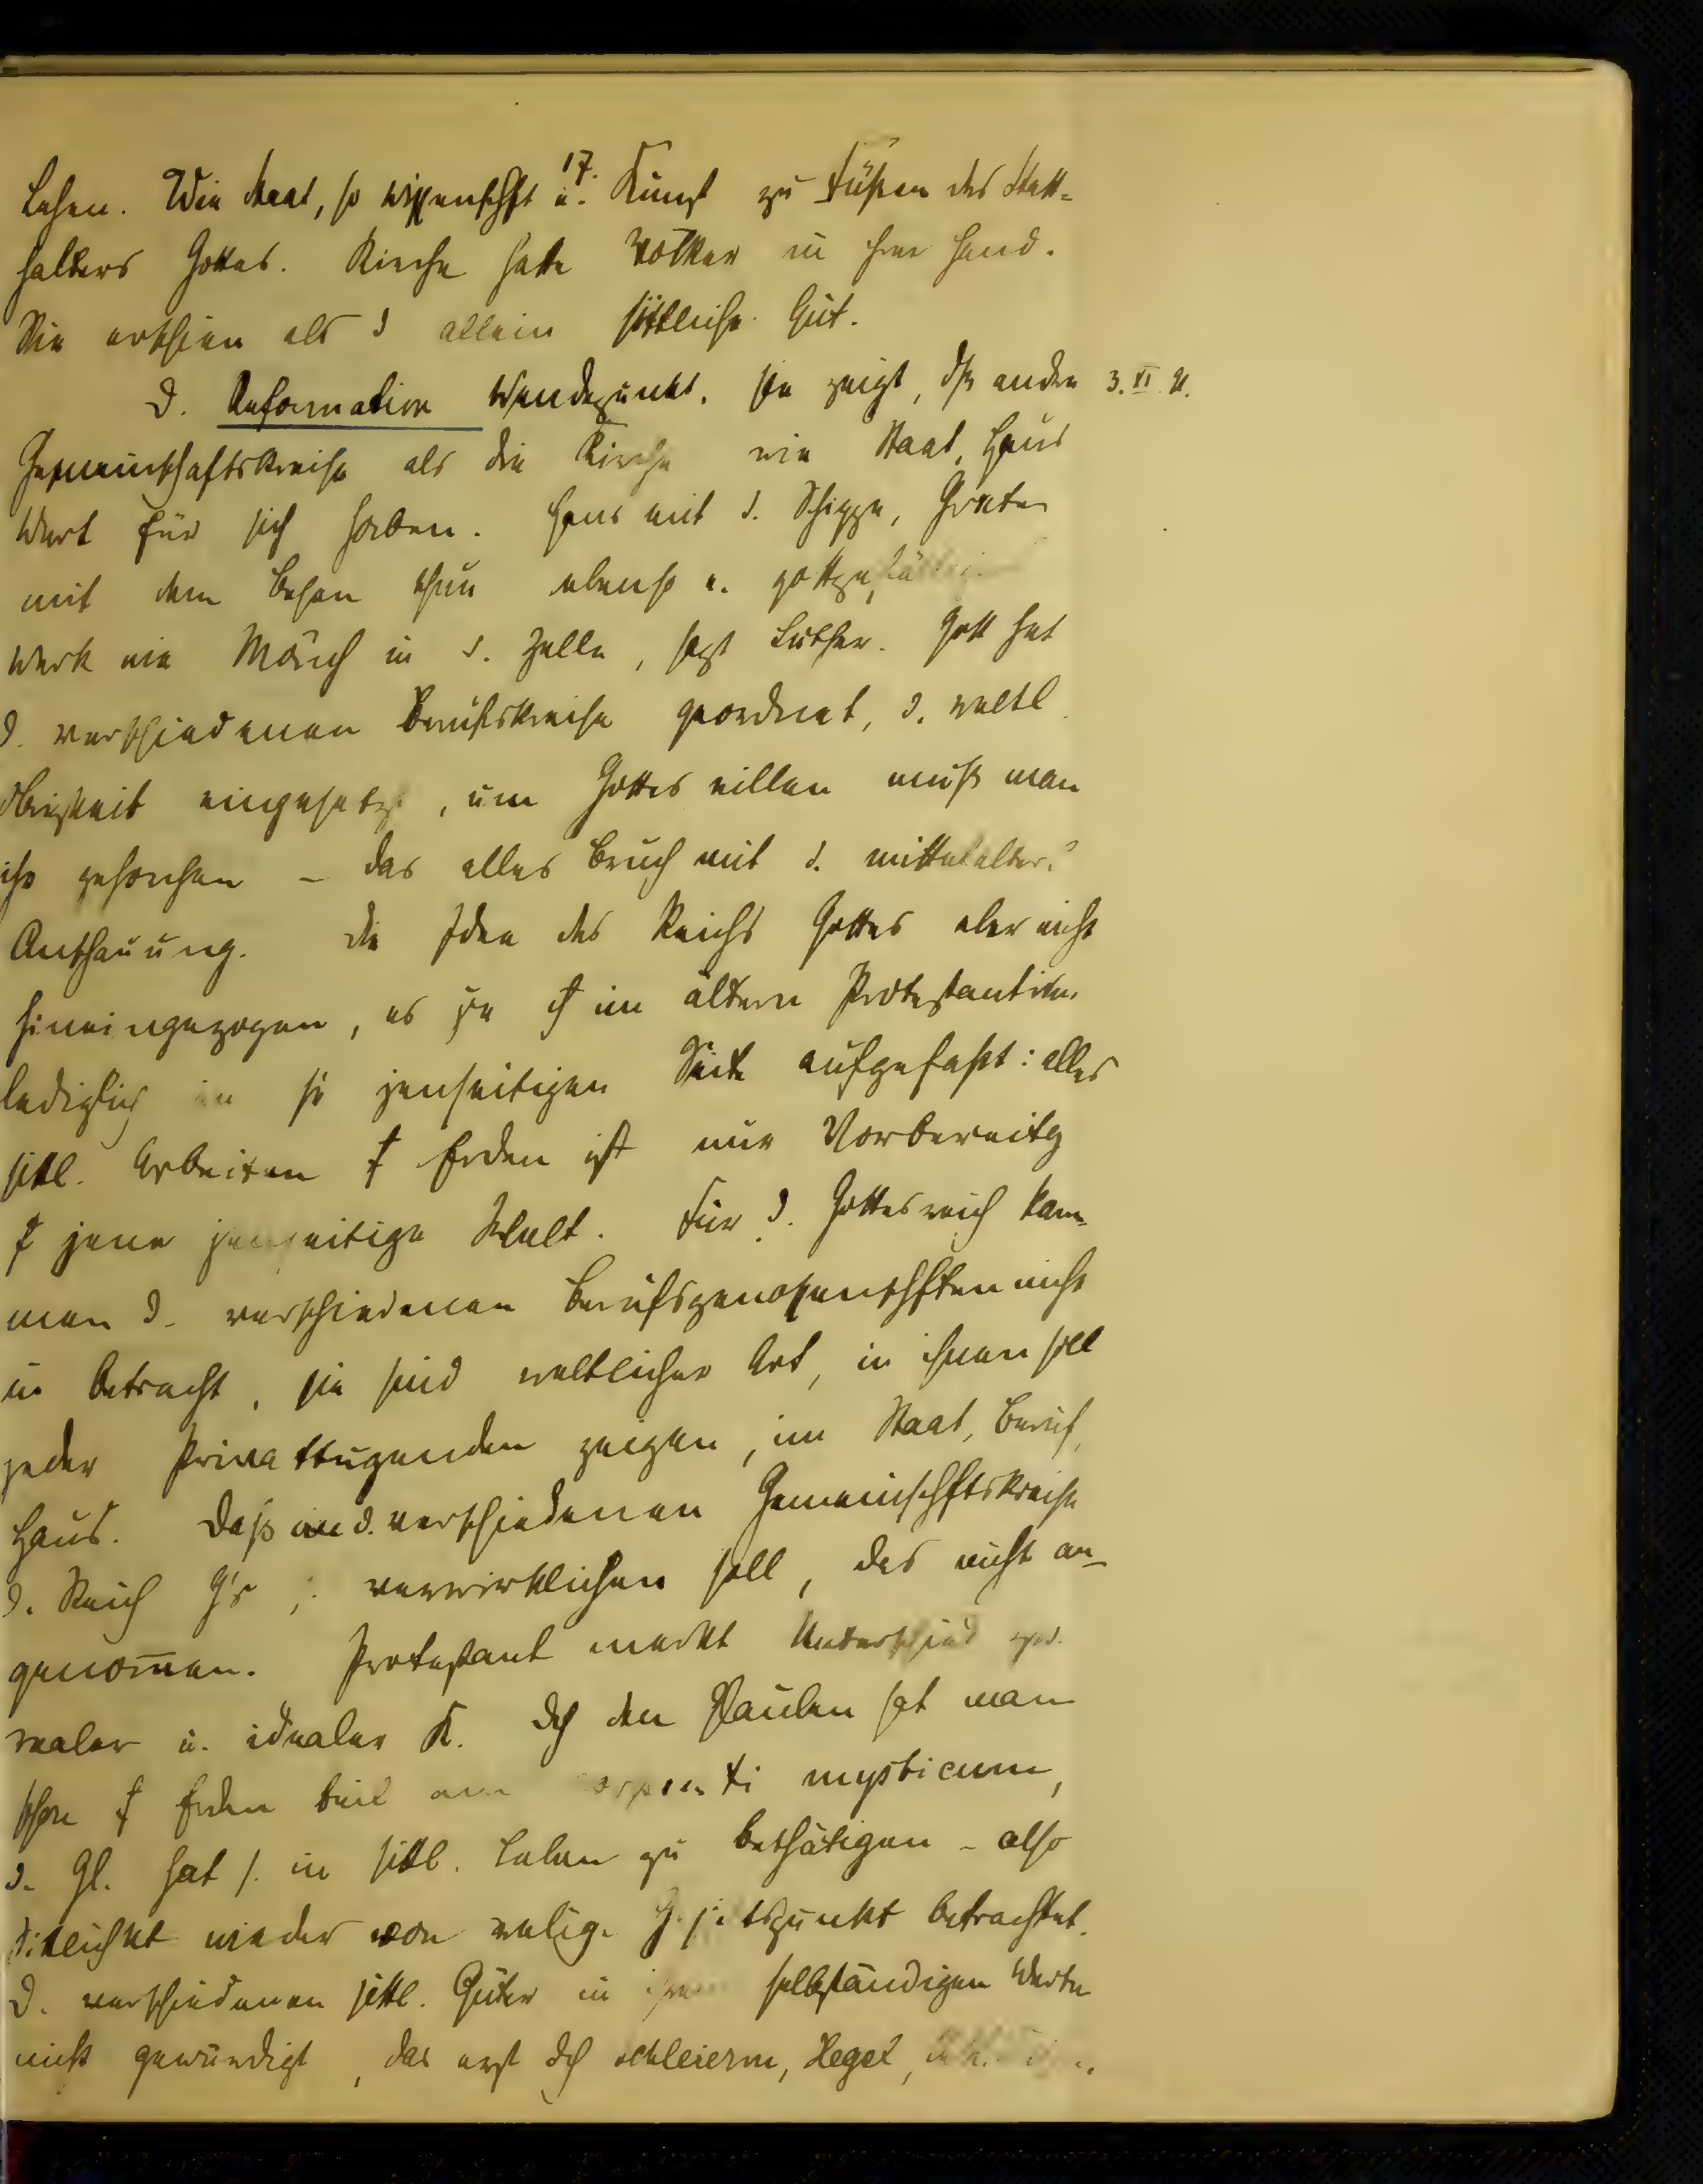 17.
Lehen. Wie Staat, so Wissenschft u. Kunst zu Füßen des Statt-
halters Gottes. Kirche hatte Völker in ihrer Hand.
Sie erschien als d allein sittliche Gut.
D. Reformation Wendepunkt. Sie zeigt, dß andere 3. XI. 91.
Gemeinschaftskreise als die Kirche wie Staat, Haus
Wert für sich haben. Hans mit d. Schippe, Grete
mit dem Besen thun ebenso e. gottgefälliges
Werk wie Mönch in s. Zelle, sagt Luther. Gott hat
d. verschiedenen Berufskreise geordnet, d. weltl.
Obrigkeit eingesetzt, um Gottes willen muß man
ihr gehorchen – das alles Bruch mit d. mittelalterl
Anschauung. Die Idee des Reichs Gottes aber nicht
hineingezogen, es im ältern Protestantism.
lediglich in jenseitigen Seite aufgefaßt: alles
sittl. Arbeiten f Erden ist nur Vorbereitg
f jene jenseitige Welt. Für d. Gottesreich kam
man d. verschiedenen Berufsgenossenschften nicht
in Betracht, sie sind weltlicher Art, in ihnen soll
jeder Privattugenden zeigen, im Staat, Beruf,
Haus. Daß in d. verschiedenen Gemeinschftskreise
d. Reich G's verwirklichen soll, das nicht an-
genom̄en. Protestant merkt Unterschied zw.
realer u. idealer K. Dch den Glauben hat man
schon f Erden teil am corpus mysticum,
d. Gl. hat s. in sittl. Leben zu bethätigen – also
Sittlichkt wieder von relig. Gesichtspunkt betrachtet.
D. verschiedenen sittl. Güter in ihrem selbständigen Werte
nicht gewürdigt, das erst dch Schleierm, Hegel,